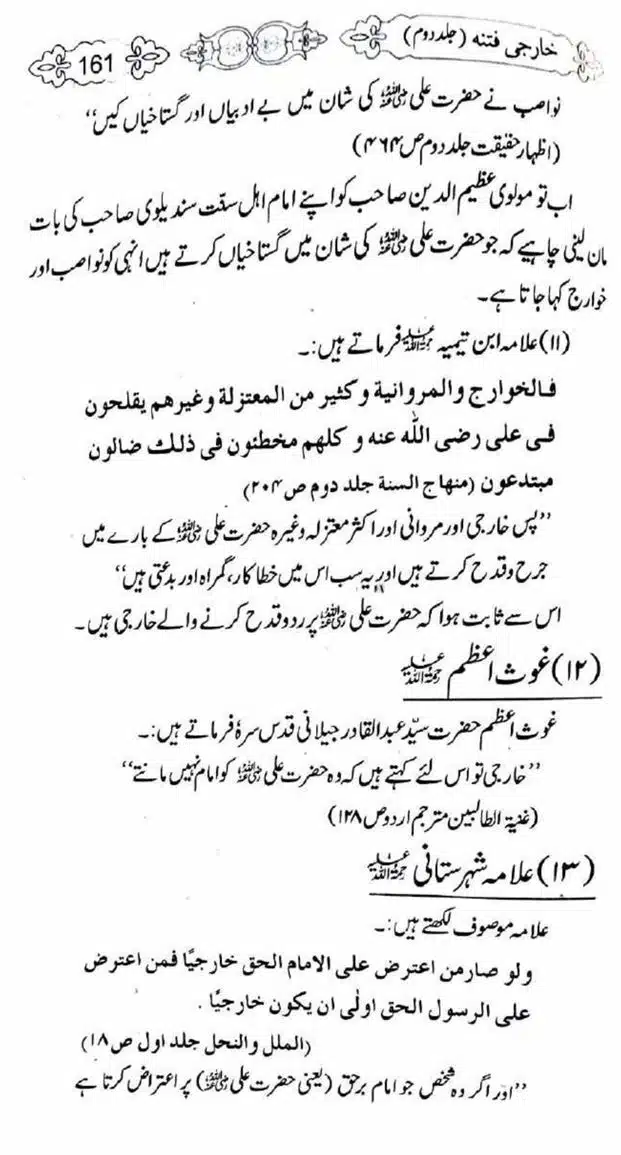 خارجی فتنہ (جلد دوم)
161
نواصب نے حضرت علی رضی اللہ عنہ کی شان میں بے ادبیاں اور گستاخیاں کیں‘‘
(اظہار حقیقت جلد دوم ص ۴۶۴)
اب تو مولوی عظیم الدین صاحب کو اپنے امام اہل سنّت سندیلوی صاحب کی بات
مان لینی چاہیے کہ جو حضرت علی رضی اللہ عنہ کی شان میں گستاخیاں کرتے ہیں انہی کو نواصب اور
خوارج کہا جاتا ہے۔
(۱۱) علامہ ابن تیمیہ رحمۃ اللہ علیہ فرماتے ہیں:۔
فالخوارج والمروانية وكثير من المعتزلة وغيرهم يقلحون
فى على رضى الله عنه و كلهم مخطئون فى ذلك ضالون
مبتدعون (منهاج السنة جلد دوم ص ۲۰۴)
’’پس خارجی اور مروانی اور اکثر معتزلہ وغیرہ حضرت علی رضی اللہ عنہ کے بارے میں
جرح و قدح کرتے ہیں اور یہ سب اس میں خطا کار، گمراہ اور بدعتی ہیں‘‘
اس سے ثابت ہوا کہ حضرت علی رضی اللہ عنہ پر ردو قدح کرنے والے خارجی ہیں۔
(۱۲) غوث اعظم رحمۃ اللہ علیہ
غوث اعظم حضرت سیّد عبدالقادر جیلانی قدس سرہٗ فرماتے ہیں:۔
’’خارجی تو اس لئے کہتے ہیں کہ وہ حضرت علی رضی اللہ عنہ کو امام نہیں مانتے‘‘
(غنیۃ الطالبین مترجم اردو ص ۱۲۸)
(۱۳) علامہ شہرستانی رحمۃ اللہ علیہ
علامہ موصوف لکھتے ہیں:۔
ولو صار من اعترض على الامام الحق خارجيًا فمن اعترض
على الرسول الحق اولٰى ان يكون خارجيًا .
(الملل والنحل جلد اول ص ۱۸)
’’اور اگر وہ شخص جو امام برحق (یعنی حضرت علی رضی اللہ عنہ) پر اعتراض کرتا ہے